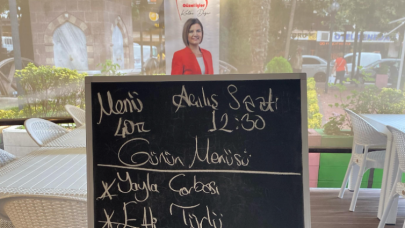 Menü Açılış Saati
40TL 12:30
Günün Menüsü
* Yayla Çorbası
* E.tk Türlü